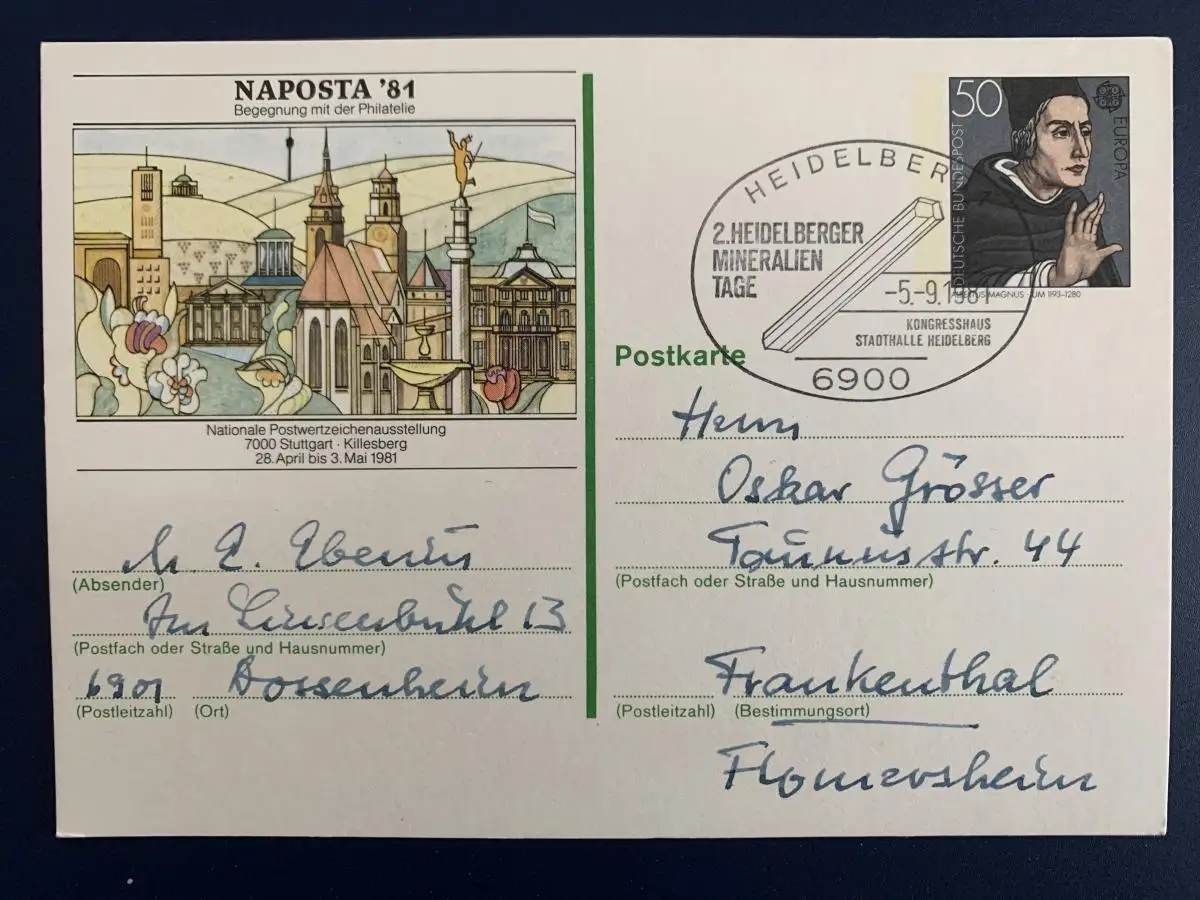 NAPOSTA '81
Begegnung mit der Philatelie
Nationale Postwertzeichenausstellung
7000 Stuttgart · Killesberg
28. April bis 3. Mai 1981
50
DEUTSCHE BUNDESPOST
EUROPA
ALBERTUS MAGNUS · UM 1193–1280
HEIDELBERG
2. HEIDELBERGER
MINERALIEN
TAGE
-5.-9.1981
KONGRESSHAUS
STADTHALLE HEIDELBERG
6900
Postkarte
Herrn
Oskar Grösser
Taunusstr. 44
(Postfach oder Straße und Hausnummer)
Frankenthal
(Postleitzahl) (Bestimmungsort)
Flomersheim
(Absender)
13
(Postfach oder Straße und Hausnummer)
6901 Dossenheim
(Postleitzahl) (Ort)